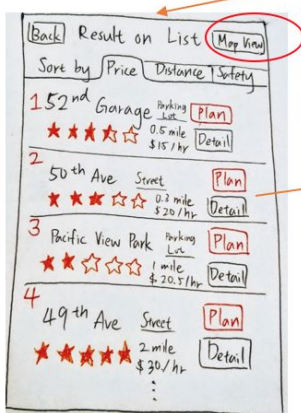 Back Result on List Map View
Sort by Price Distance Safety
1 52nd Garage Parking Lot Plan
0.5 mile Detail
$15/hr
2
50th Ave Street Plan
0.3 mile Detail
$20/hr
3 Pacific View Park Parking Lot Plan
1 mile Detail
$20.5/hr
4
49th Ave Street Plan
2 mile Detail
$30/hr